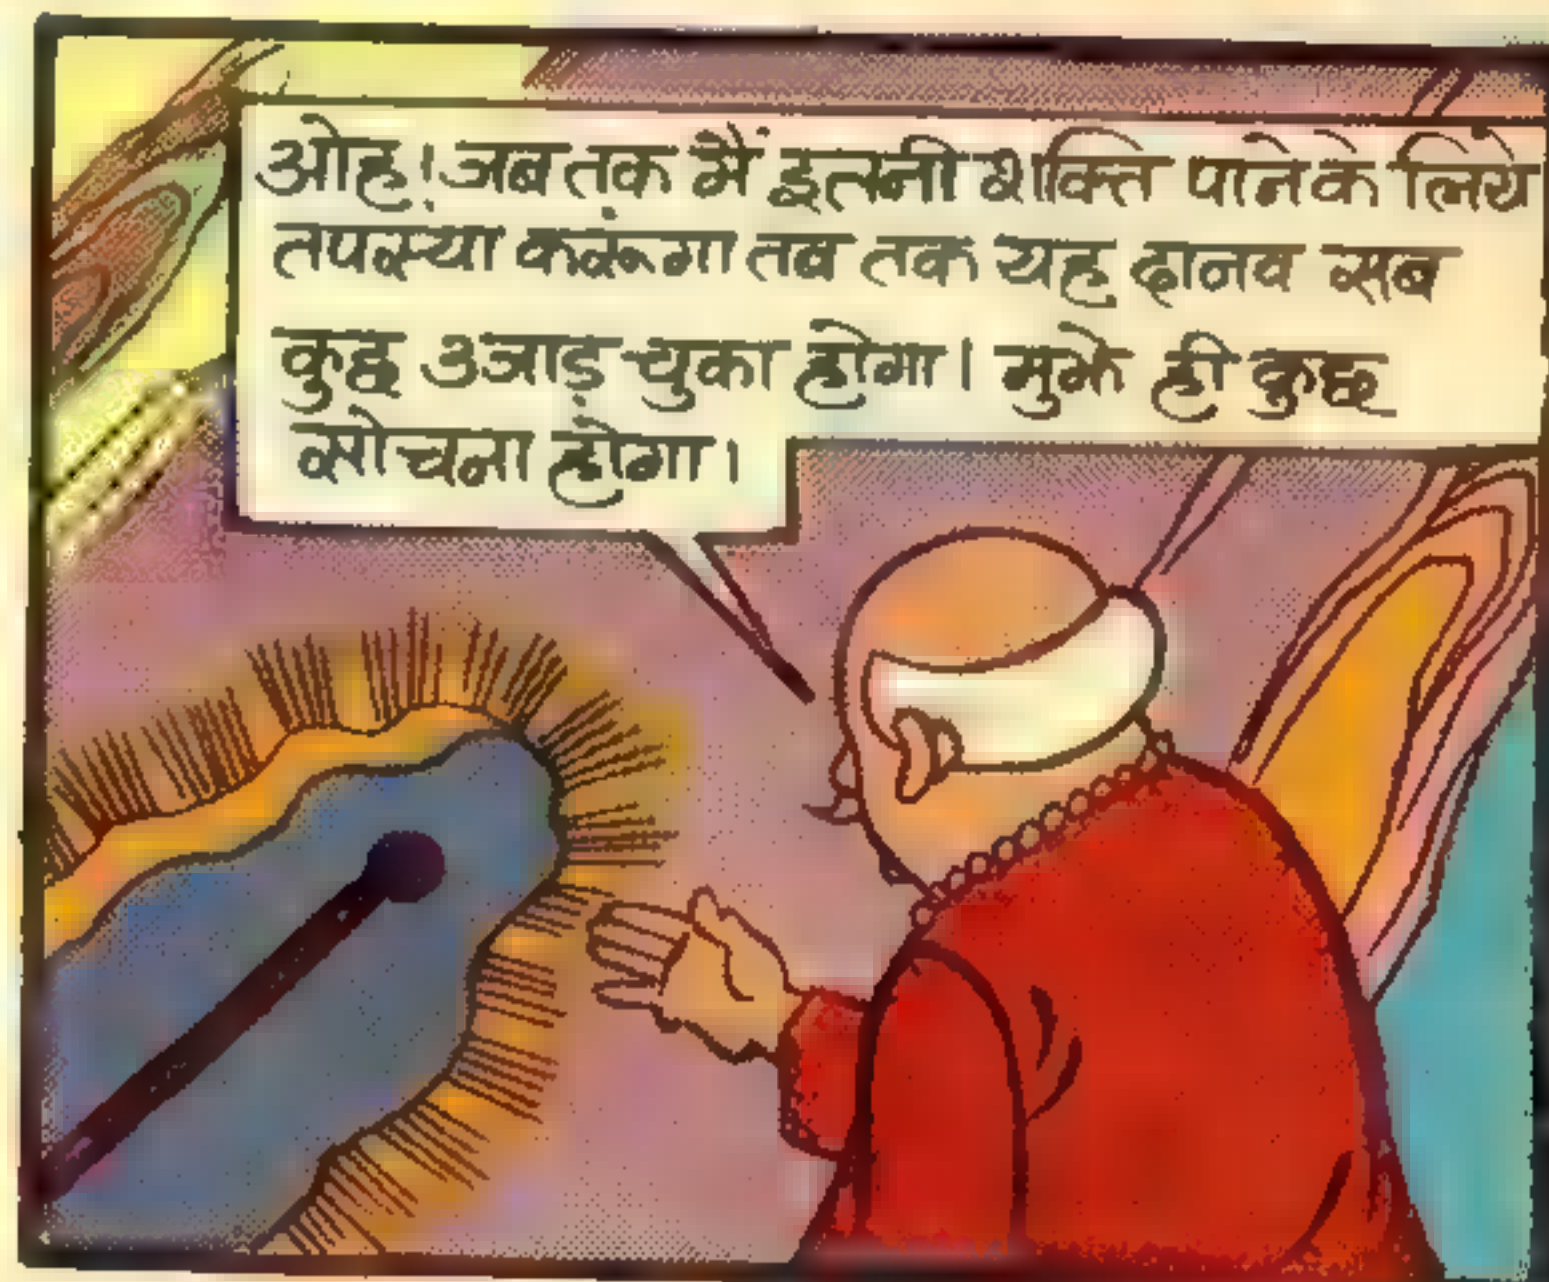 ओह! जब तक मैं इतनी शक्ति पाने के लिये
तपस्या करूंगा तब तक यह दानव सब
कुछ उजाड़ चुका होगा। मुझे ही कुछ
सोचना होगा।